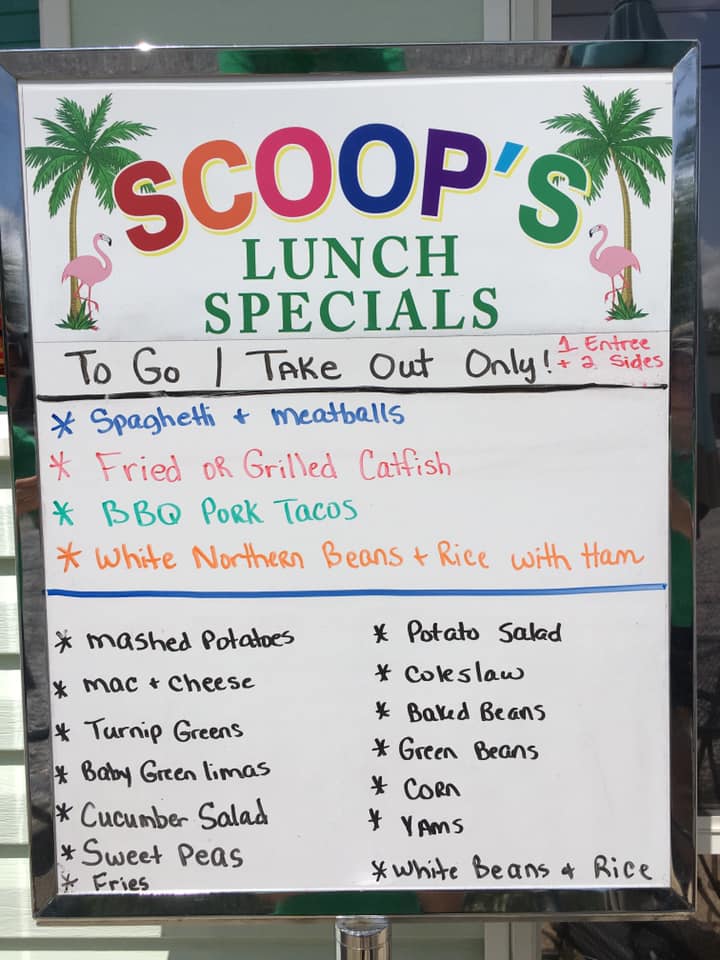 SCOOP'S
LUNCH
SPECIALS
To Go | Take Out Only!
1 Entree
+ 2 Sides
* Spaghetti + meatballs
* Fried or Grilled Catfish
* BBQ Pork Tacos
* White Northern Beans + Rice with Ham
* mashed Potatoes
* mac + cheese
* Turnip Greens
* Baby Green limas
* Cucumber Salad
* Sweet Peas
* Fries
* Potato Salad
* Coleslaw
* Baked Beans
* Green Beans
* Corn
* Yams
* White Beans & Rice